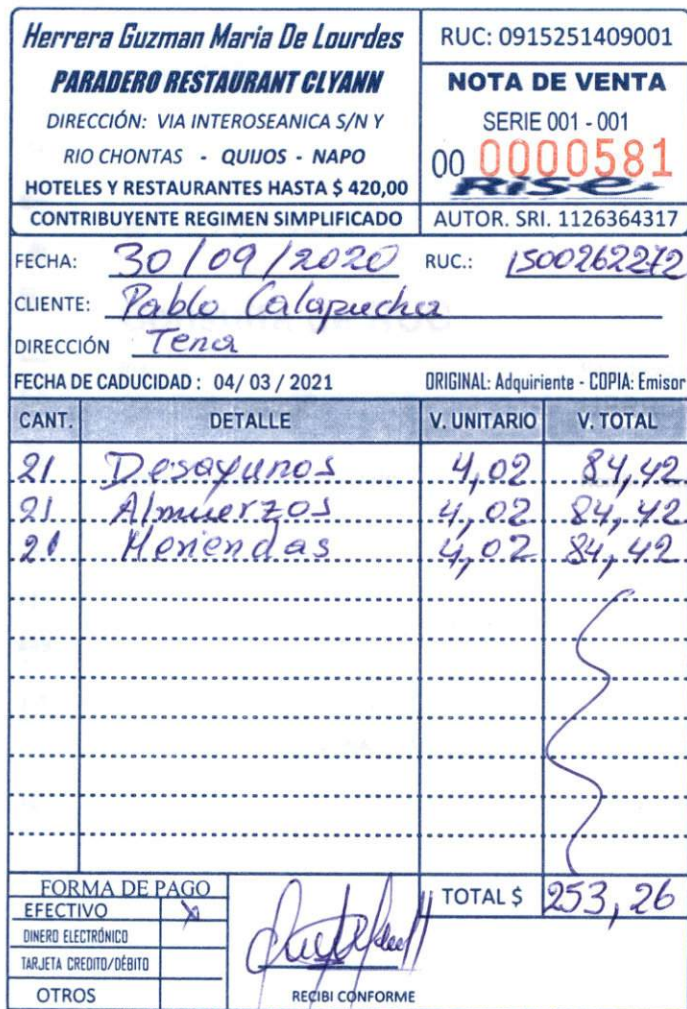 Herrera Guzman Maria De Lourdes
PARADERO RESTAURANT CLYANN
DIRECCIÓN: VIA INTEROSEANICA S/N Y
RIO CHONTAS - QUIJOS - NAPO
HOTELES Y RESTAURANTES HASTA $ 420,00
CONTRIBUYENTE REGIMEN SIMPLIFICADO
RUC: 0915251409001
NOTA DE VENTA
SERIE 001 - 001
00 0000581
RISE
AUTOR. SRI. 1126364317
FECHA: 30/09/2020 RUC.: 1500262272
CLIENTE: Pablo Calapucha
DIRECCIÓN Tena
FECHA DE CADUCIDAD : 04/ 03 / 2021 ORIGINAL: Adquiriente - COPIA: Emisor
CANT. DETALLE V. UNITARIO V. TOTAL
21 Desayunos 4,02 84,42
21 Almuerzos 4,02 84,42
21 Meriendas 4,02 84,42
FORMA DE PAGO
EFECTIVO X
DINERO ELECTRÓNICO
TARJETA CREDITO/DÉBITO
OTROS
RECIBI CONFORME
TOTAL $ 253,26